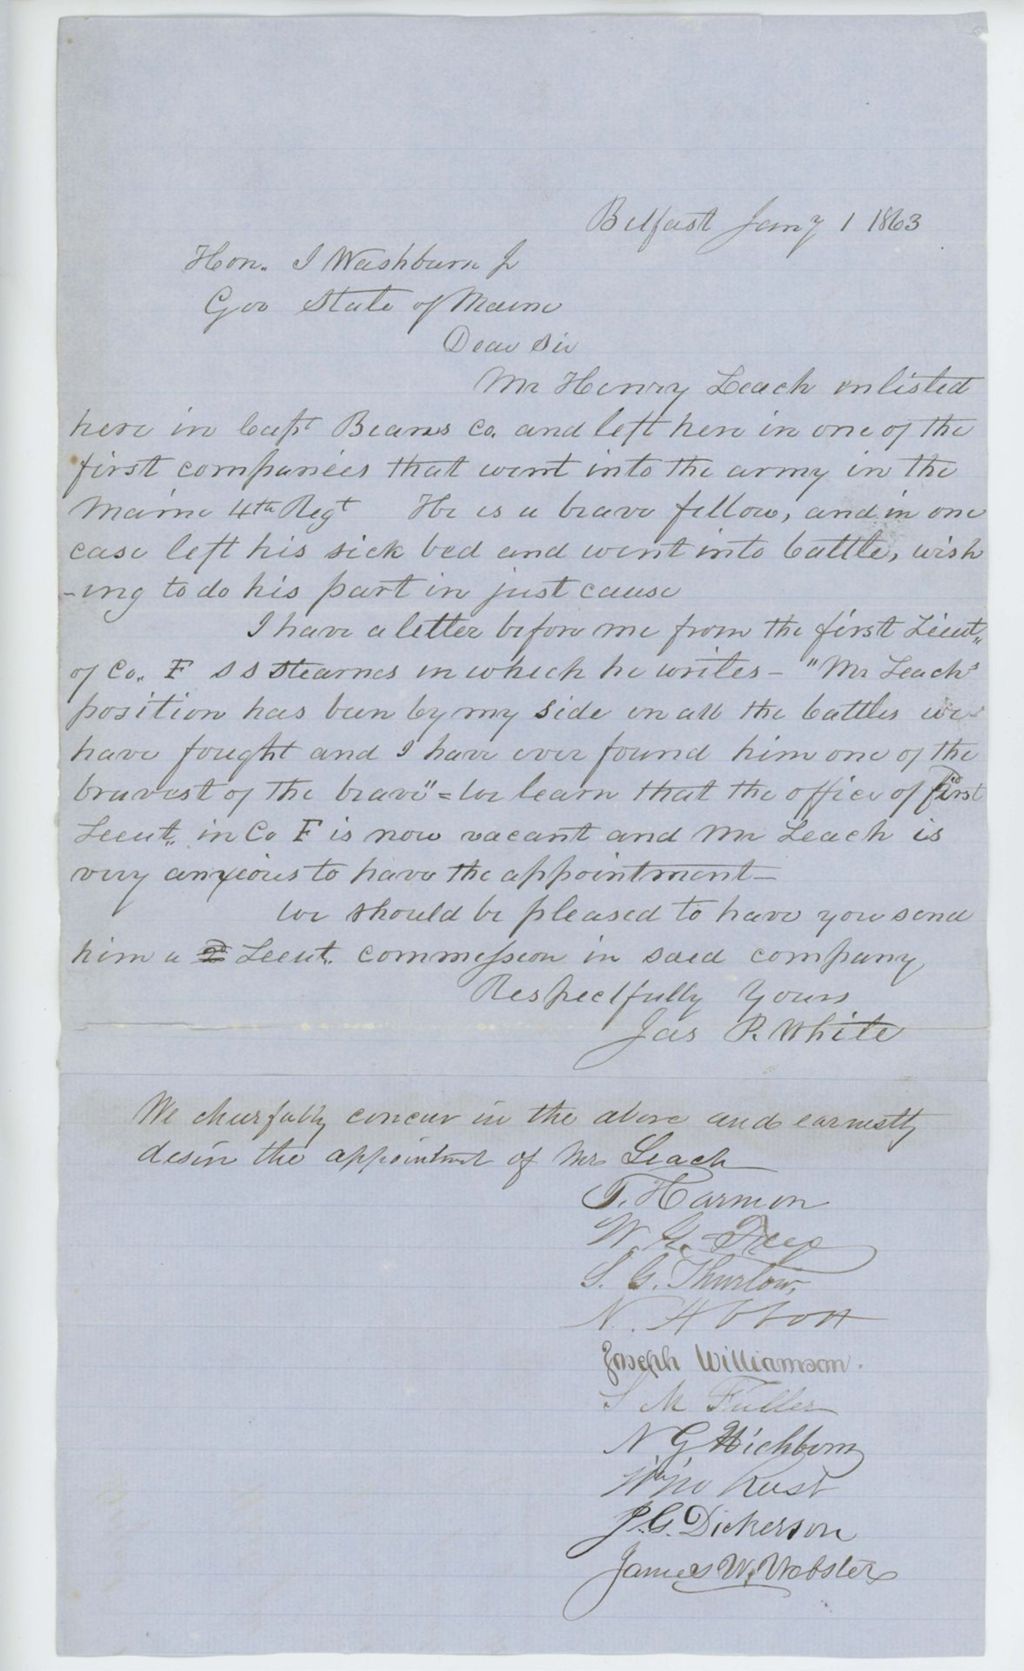 Belfast Jany 1 1863
Hon. I Washburn Jr
Gov State of Maine
Dear Sir
Mr Henry Leach enlisted
here in Capt Beans Co. and left here in one of the
first companies that went into the army in the
Maine 4th Regt He is a brave fellow, and in one
case left his sick bed and went into battle, wish
-ing to do his part in just cause
I have a letter before me from the first Lieut,,
of Co. F S S Stearnes in which he writes - "Mr Leach's
position has been by my side in all the battles we
have fought and I have ever found him one of the
bravest of the brave" = We learn that the office of first
Lieut,, in Co F is now vacant and Mr Leach is
very anxious to have the appointment -
We should be pleased to have you send
him a Lieut. commission in said company
Respectfully Yours
Jas P. White
We cheerfully concur in the above and earnestly
desire the appointment of Mr Leach
T. Harmon
W. G.
S. G. Thurlow,
N. Abbott
Joseph Williamson.
S M Fuller
N G Hichborn
Wm Rust
J. G. Dickerson
James W. Webster